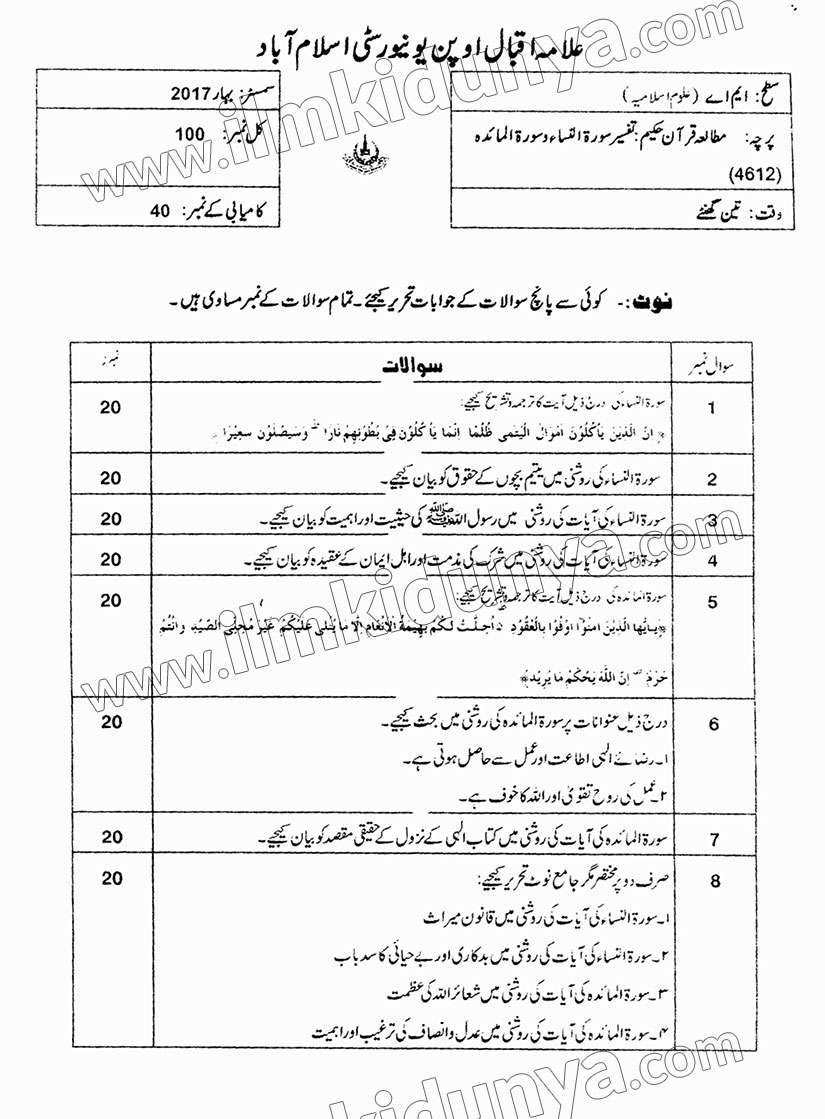 علامہ اقبال اوپن یونیورسٹی اسلام آباد
سطح: ایم اے (علوم اسلامیہ)
پرچہ: مطالعہ قرآن حکیم: تفسیر سورۃ النساء و سورۃ المائدہ
(4612)
وقت: تین گھنٹے
سمسٹر: بہار 2017
کل نمبر: 100
کامیابی کے نمبر: 40
نوٹ:- کوئی سے پانچ سوالات کے جوابات تحریر کیجئے۔ تمام سوالات کے نمبر مساوی ہیں۔
سوال نمبر سوالات نمبرز
1 سورۃ النساء کی درج ذیل آیت کا ترجمہ و تشریح کیجیے: 20
﴿اِنَّ الَّذِیْنَ یَاْکُلُوْنَ اَمْوَالَ الْیَتٰمٰی ظُلْمًا اِنَّمَا یَاْکُلُوْنَ فِیْ بُطُوْنِهِمْ نَارًا ؕ وَسَیَصْلَوْنَ سَعِیْرًا﴾
2 سورۃ النساء کی روشنی میں یتیم بچوں کے حقوق کو بیان کیجیے۔ 20
3 سورۃ النساء کی آیات کی روشنی میں رسول اللہ ﷺ کی حیثیت اور اہمیت کو بیان کیجیے۔ 20
4 سورۃ النساء کی آیات کی روشنی میں شرک کی مذمت اور اہل ایمان کے عقیدہ کو بیان کیجیے۔ 20
5 سورۃ المائدہ کی درج ذیل آیت کا ترجمہ و تشریح کیجیے: 20
﴿یٰۤاَیُّهَا الَّذِیْنَ اٰمَنُوْۤا اَوْفُوْا بِالْعُقُوْدِ ؕ اُحِلَّتْ لَکُمْ بَهِیْمَةُ الْاَنْعَامِ اِلَّا مَا یُتْلٰی عَلَیْکُمْ غَیْرَ مُحِلِّی الصَّیْدِ وَاَنْتُمْ
حُرُمٌ ؕ اِنَّ اللّٰهَ یَحْکُمُ مَا یُرِیْدُ﴾
6 درج ذیل عنوانات پر سورۃ المائدہ کی روشنی میں بحث کیجیے۔ 20
۱۔ رضائے الٰہی اطاعت اور عمل سے حاصل ہوتی ہے۔
۲۔ عمل کی روح تقویٰ اور اللہ کا خوف ہے۔
7 سورۃ المائدہ کی آیات کی روشنی میں کتاب الٰہی کے نزول کے حقیقی مقصد کو بیان کیجیے۔ 20
8 صرف دو پر مختصر مگر جامع نوٹ تحریر کیجیے: 20
۱۔ سورۃ النساء کی آیات کی روشنی میں قانون میراث
۲۔ سورۃ النساء کی آیات کی روشنی میں بدکاری اور بے حیائی کا سدباب
۳۔ سورۃ المائدہ کی آیات کی روشنی میں شعائر اللہ کی عظمت
۴۔ سورۃ المائدہ کی آیات کی روشنی میں عدل و انصاف کی ترغیب اور اہمیت
www.ilmkidunya.com
www.ilmkidunya.com
kidunya.com